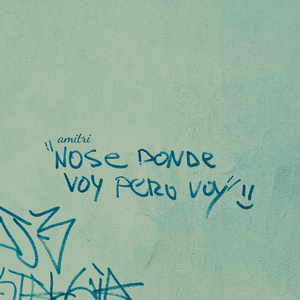 amitri
"NOSE DONDE
VOY PERO VOY"